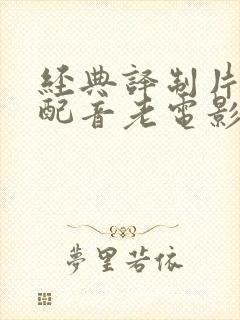 經典譯制片
配音老電影
夢里若依